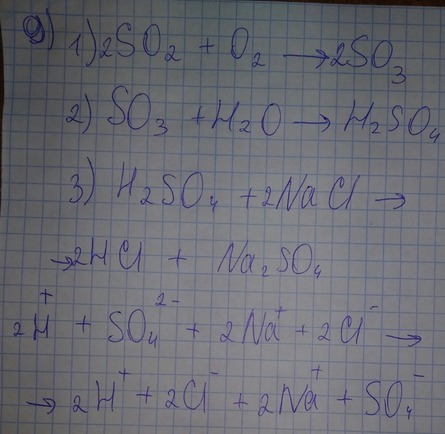 9) 1) 2SO₂ + O₂ → 2SO₃
2) SO₃ + H₂O → H₂SO₄
3) H₂SO₄ + 2NaCl →
→ 2HCl + Na₂SO₄
2H⁺ + SO₄²⁻ + 2Na⁺ + 2Cl⁻ →
→ 2H⁺ + 2Cl⁻ + 2Na⁺ + SO₄⁻